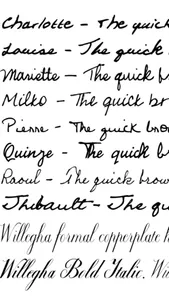 Charlotte - The quick
Louise - The quick
Mariette - The quick b
Milko - The quick br
Pierre - The quick bro
Quinze - The quick b
Raoul - The quick brow
Thibault - The qu
Willegha formal copperplate h
Willegha Bold Italic. Wi